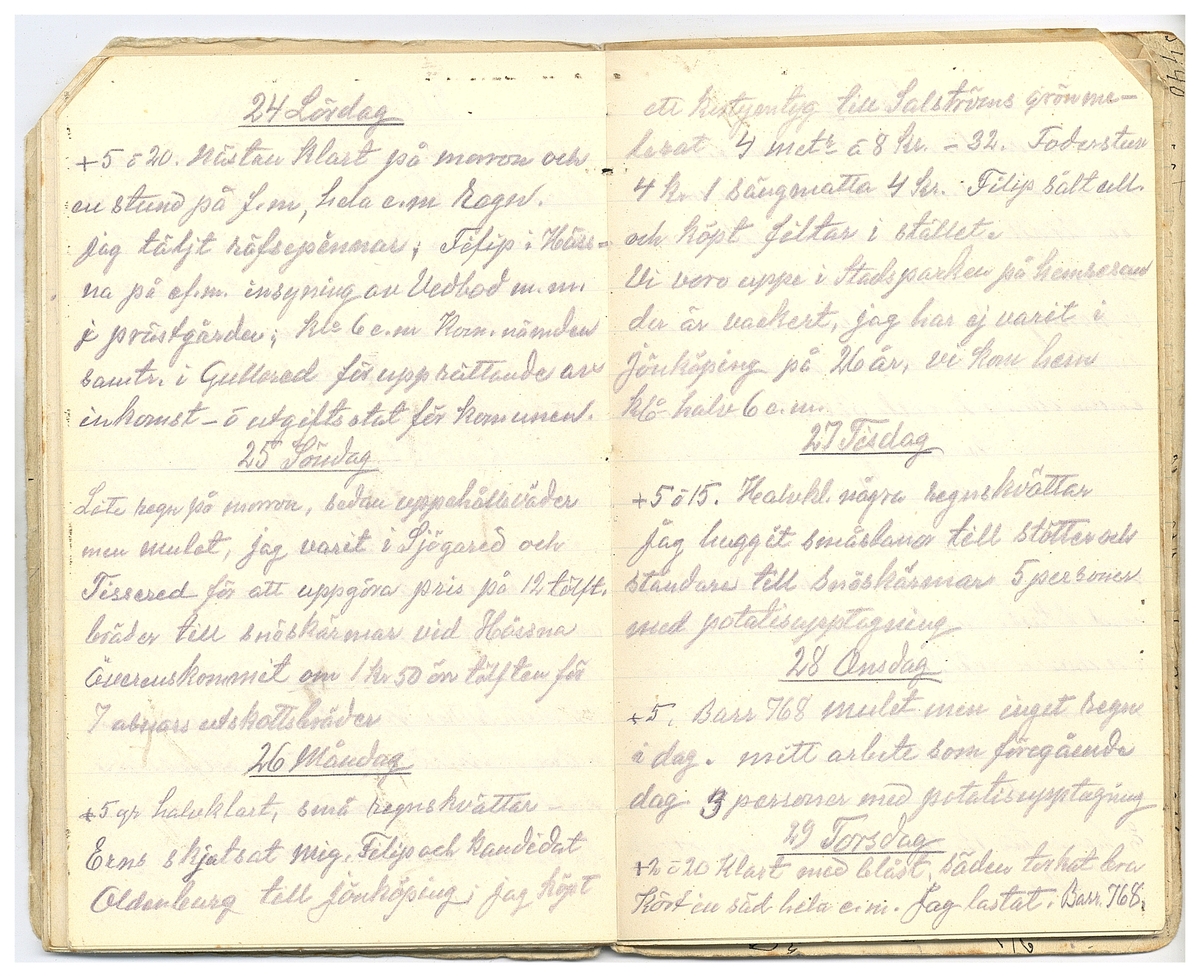 24 Lördag
+5 o 20. Nästan klart på morron och
en stund på f.m, hela e.m Regn.
jag täljt räfsepinnar; Filip i Häss-
na på ef.m. insyning av Vedbod m.m.
i prästgården; klo 6 e.m Kom. nämden
samtr. i Gullered för upprättande av
inkomst- o utgiftsstat för komunen.
25 Söndag
Lite regn på morron, sedan uppehållsväder
men mulet, jag varit i Sjögared och
Tissered för att uppgöra pris på 12 tolft.
bräder till snöskärmar vid Hässna
överenskommit om 1 kr 50 öre tolften för
7 utskottsbräder
26 Måndag
+5 gr halvklart, små regnskvättar
Erns skjutsat mig, Filip och kandidat
Oldenburg till Jönköping; jag köpt
ett till Salströms grönme-
lerat 4 metr à 8 kr. = 32. Foder
4 kr 1 sängmatta 4 kr. Filip sålt ull.
och köpt filtar i stället.
Vi voro uppe i Stadsparken på
der är vackert, jag har ej varit i
Jönköping på 26 år, vi kom hem
klo halv 6 e.m.
27 Tisdag
+5 o 15. Halvkl. några regnskvättar
jag huggit småslanor till stöttor och
ständare till snöskärmar 5 personer
med potatisupptagning
28 Onsdag
+5. Barr 768 mulet men inget regn
i dag. mitt arbete som föregående
dag 3 personer med potatisupptagning
29 Torsdag
+2 o 20 Klart med blåst, säden torkat bra
Kört in säd hela e.m. Jag lastat. Barr. 768.